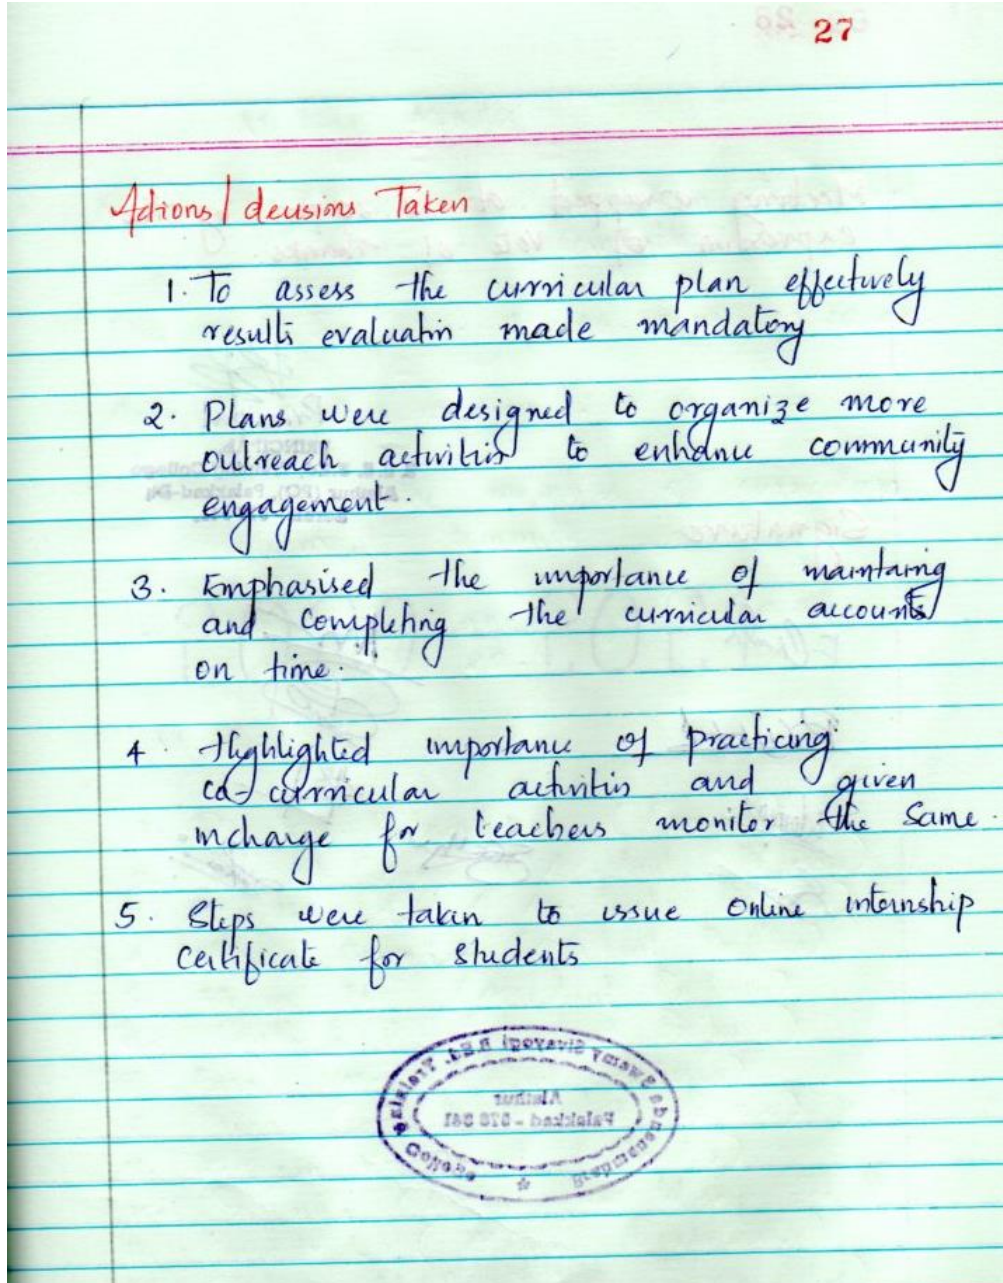 27
Actions/decisions Taken
1. To assess the curricular plan effectively
results evaluation made mandatory
2. Plans were designed to organize more
outreach activities to enhance community
engagement.
3. Emphasised the importance of maintaing
and completing the curricular accounts
on time.
4. Highlighted importance of practicing
co-curricular activities and given
incharge for teachers monitor the same.
5. Steps were taken to issue online internship
certificate for students
Brahmananda Swamy Sivayogi B.Ed. Training College
Alathur
Palakkad - 678 541